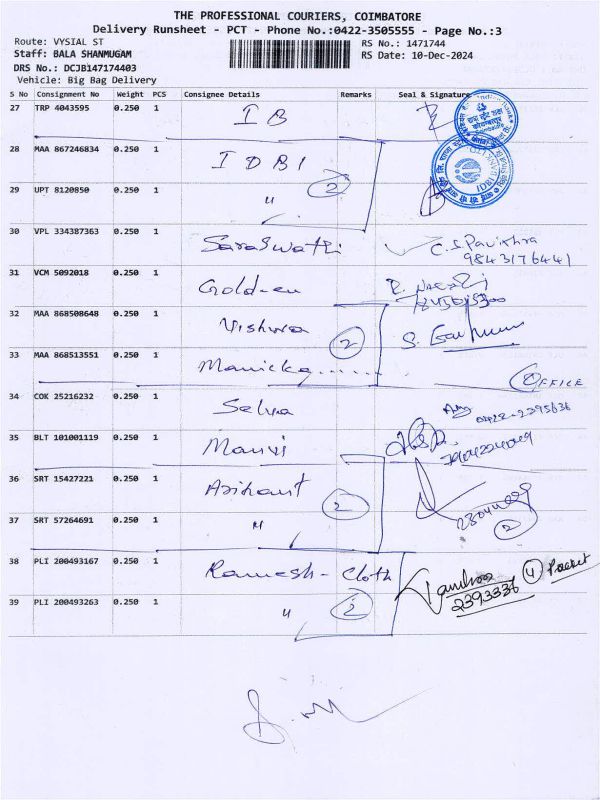 THE PROFESSIONAL COURIERS, COIMBATORE
Delivery Runsheet - PCT - Phone No.:0422-3505555 - Page No.:3
Route: VYSIAL ST
RS No.: 1471744
Staff: BALA SHANMUGAM
RS Date: 10-Dec-2024
DRS No.: DCJB147174403
Vehicle: Big Bag Delivery
S No Consignment No Weight PCS Consignee Details Remarks Seal & Signature
27 TRP 4043595 0.250 1 I B
28 MAA 867246834 0.250 1 I D B I
29 UPT 8120850 0.250 1 " 2
30 VPL 334387363 0.250 1 Saraswathi C. S. Pavithra
9843176441
31 VCM 5092018 0.250 1 Golden
32 MAA 868508648 0.250 1 Vishwa 2
33 MAA 868513551 0.250 1 Manicka......
OFFICE
34 COK 25216232 0.250 1 Selva 0422-2395636
35 BLT 101001119 0.250 1
36 SRT 15427221 0.250 1 Arihant 2
37 SRT 57264691 0.250 1 " 2
38 PLI 200493167 0.250 1 Ramesh - Cloth 4 Packet
2393336
39 PLI 200493263 0.250 1 " 2